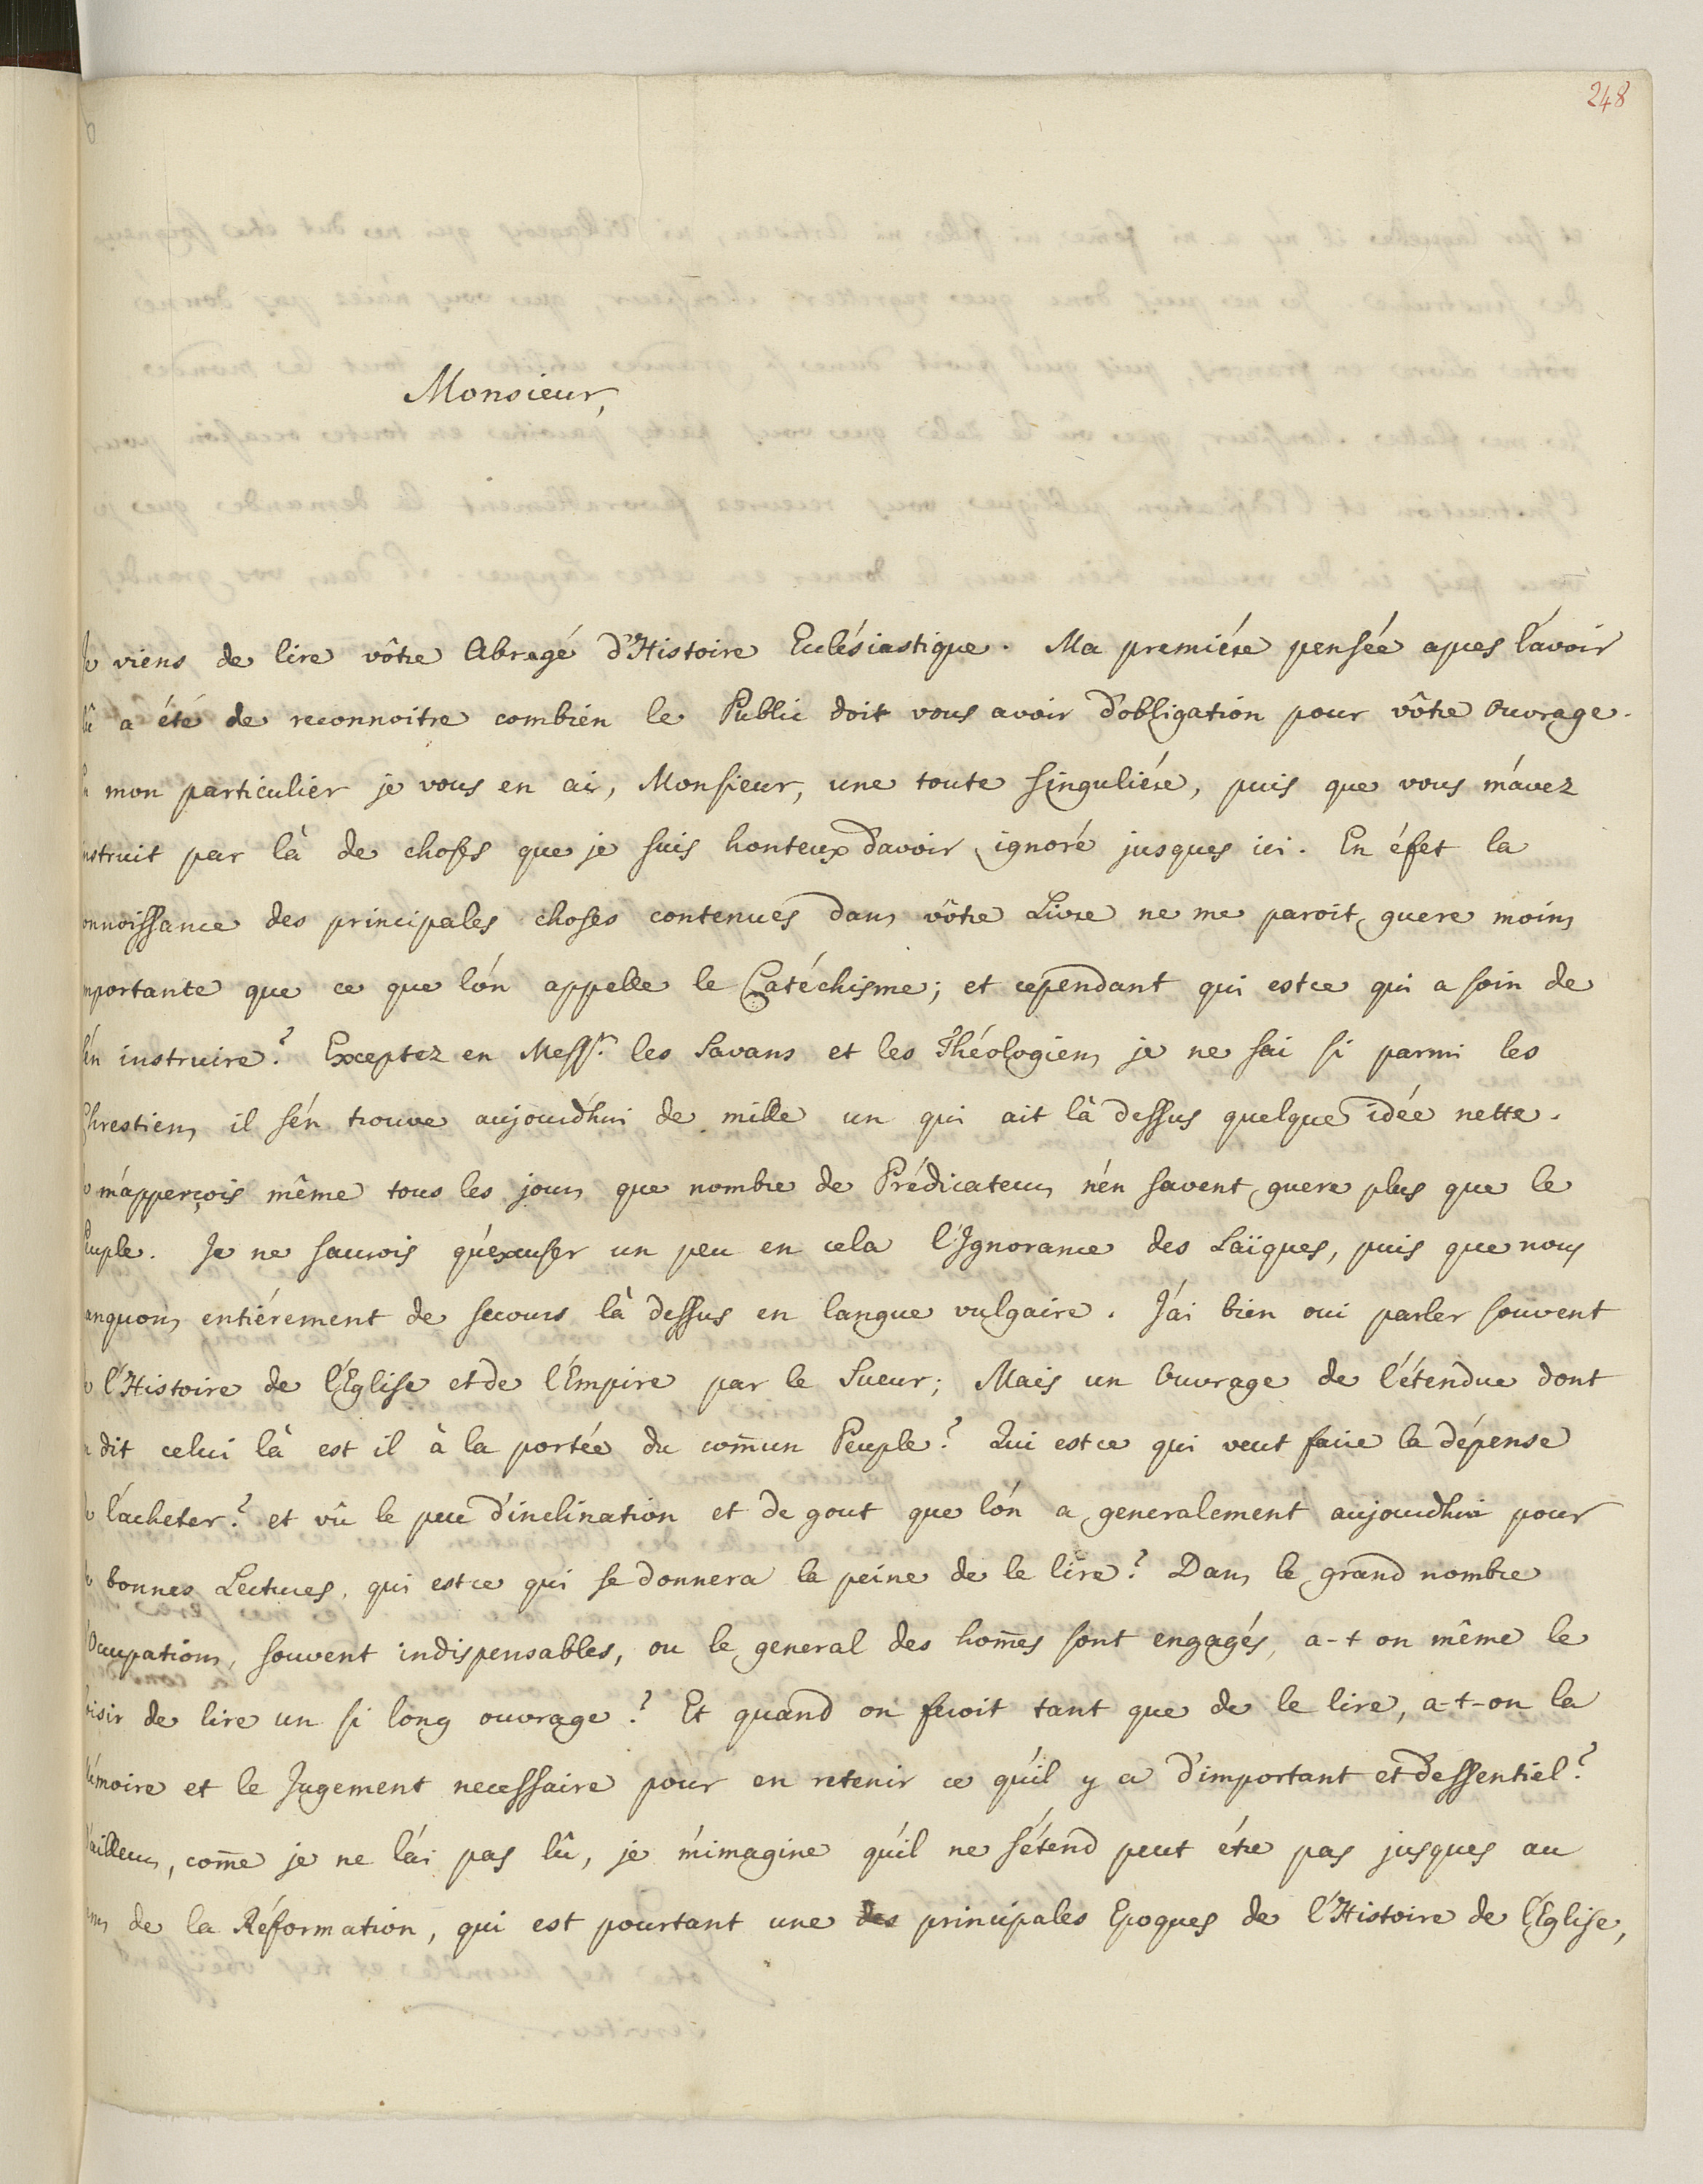 248
Monsieur,
Je viens de lire vôtre Abregé d'Histoire Eclésiastique. Ma premiére pensée apres l'avoir
lû a été de reconnoitre combien le Public doit vous avoir d'obligation pour vôtre Ouvrage.
mon particulier je vous en ai, Monsieur, une toute singuliére, puis que vous m'avez
nstruit par là de choses que je suis honteux d'avoir ignoré jusques ici. En éfet la
onnoissance des principales choses contenues dans vôtre Livre ne me paroit guere moins
mportante que ce que l'on appelle le Catéchisme; et cependant qui estce qui a soin de
s'en instruire? Exceptez en Mess.rs les Savans et les Théologiens je ne sai si parmi les
Chrestiens il s'en trouve aujourd'hui de mille un qui ait là dessus quelque idée nette.
m'apperçois même tous les jours que nombre de Prédicateurs n'en savent guere plus que le
Peuple. Je ne saurois qu'excuser un peu en cela l'Ignorance des Laïques, puis que nous
anquons entiérement de secours là dessus en langue vulgaire. J'ai bien oui parler souvent
l'Histoire de l'Eglise et de l'Empire par le Sueur; Mais un Ouvrage de l'étendue dont
dit celui là est il à la portée du com̄un Peuple? Qui estce qui veut faire la dépense
l'acheter? et vû le peu d'inclination et de gout que l'on a generalement aujourdhui pour
bonnes Lectures, qui estce qui se donnera la peine de le lire? Dans le grand nombre
d'Ocupations, souvent indispensables, ou le general des hom̄es sont engagés, a-t on même le
oisir de lire un si long ouvrage? Et quand on feroit tant que de le lire, a-t-on la
Mémoire et le Jugement necessaire pour en retenir ce qu'il y a d'important et d'essentiel?
D'ailleurs, com̄e je ne l'ai pas lû, je m'imagine qu'il ne s'étend peut étre pas jusques au
ems de la Réformation, qui est pourtant une des principales Epoques de l'Histoire de l'Eglise,